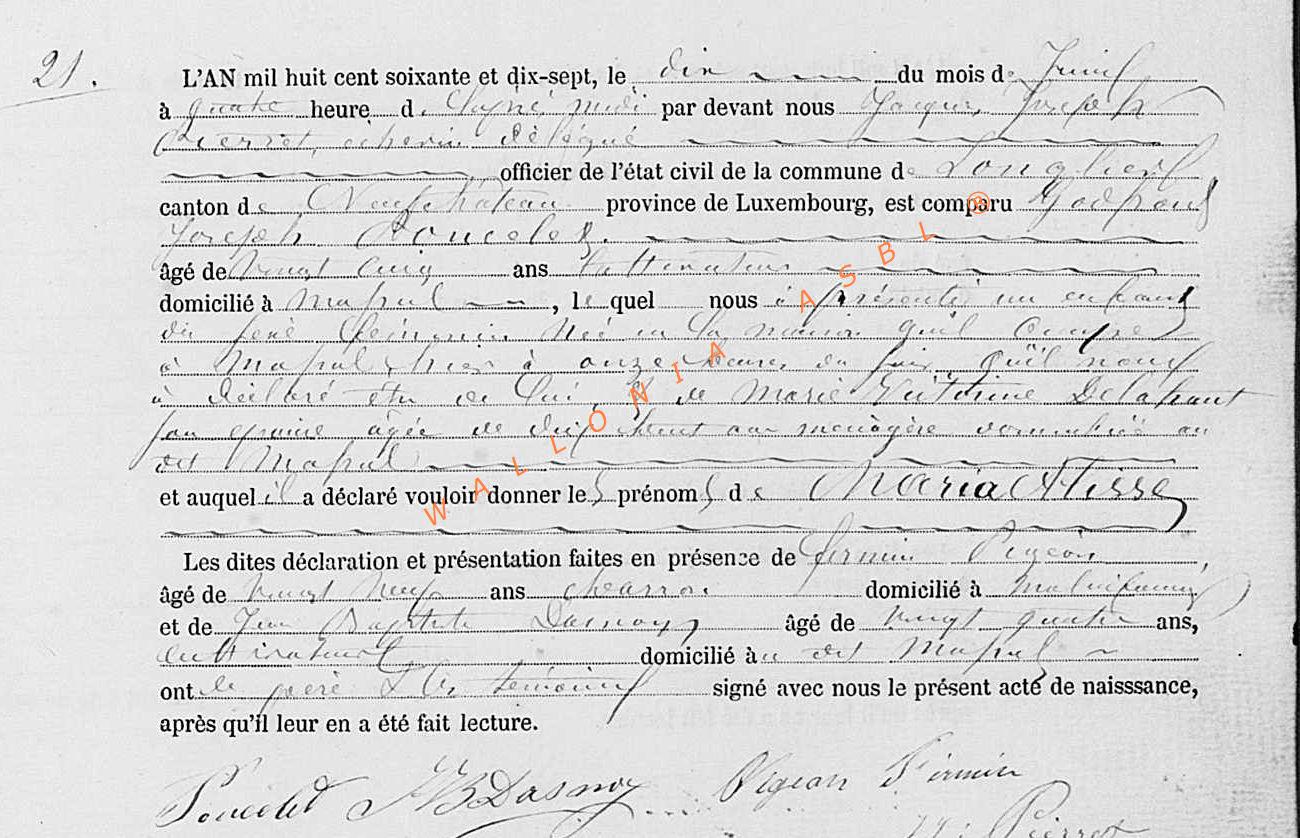 21.
L'AN mil huit cent soixante et dix-sept, le dix du mois de Juin
à quatre heure de l'après midi par devant nous Jacques Joseph
Pierret, echevin délégué
officier de l'état civil de la commune de Longlier
canton de Neufchâteau province de Luxembourg, est comparu Godfroid
Joseph Poncelet
âgé de vingt cinq ans cultivateur
domicilié à Massul, lequel nous a présenté un enfant
du sexe féminin née en la maison qu'il occupe
à Massul hier à onze heures du soir qu'il nous
a déclaré être de lui & de Marie Victorine Delahaut
son épouse âgée de dix huit ans ménagère domiciliée au
dit Massul
et auquel il a déclaré vouloir donner les prénoms de Maria
Les dites déclaration et présentation faites en présence de firmin Pigeon,
âgé de vingt neuf ans charron domicilié à
et de Jean Baptiste Dasnoy, âgé de vingt quatre ans,
cultivateur domicilié au dit Massul
ont le père & les témoins signé avec nous le présent acte de naisssance,
après qu'il leur en a été fait lecture.
Poncelet JB Dasnoy Pigeon Firmin
Pierret
WALLONIA ASBL ®